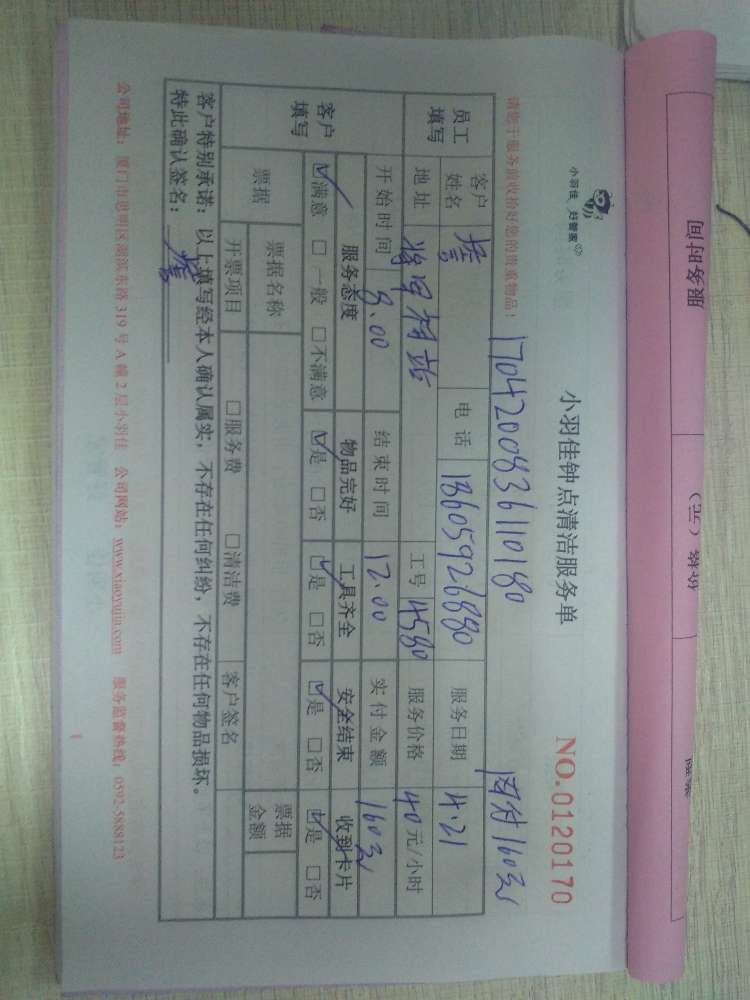 小羽佳 好管家
小羽佳钟点清洁服务单
NO.0120170
请您于服务前收拾好您的贵重物品！
1704200836110180
网付160元
员工填写
客户姓名 詹 电话 13605926880 服务日期 4.21
地址 将军祠站 工号 4580 服务价格 40 元/小时
开始时间 8.00 结束时间 12.00 实付金额 160元
客户填写
服务态度 物品完好 工具齐全 安全结束 收到卡片
☑满意 □一般 □不满意 ☑是 □否 ☑是 □否 ☑是 □否 ☑是 □否
票据 票据名称 票据金额
开票项目 □服务费 □清洁费 客户签名
客户特别承诺：以上填写经本人确认属实，不存在任何纠纷，不存在任何物品损坏。
特此确认签名：詹
公司地址：厦门市思明区湖滨东路319号A幢2层小羽佳 公司网站：www.xiaoyujia.com 服务监督热线：0592-5888123
服务时间